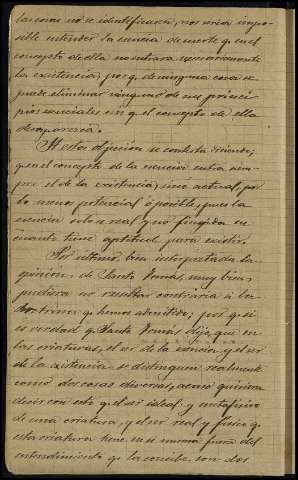 las cosas no se identificasen, nos sería impo-
sible entender la esencia de suerte q. en el
concepto de ella no entrara necesariamente
la existencia; porq. de ninguna cosa se
puede eliminar ninguno de sus princi-
pios esenciales sin q. el concepto de ella
desaparezca.
A esta objecion se contesta diciendo;
q. en el concepto de la esencia entra siem-
pre el de la existencia, sino actual, por
lo menos potencial ó posible, pues la
esencia solo es real y no fingida en
cuanto tiene aptitud para existir.
Por último, bien interpretada la
opinion de Santo Tomás, muy bien
pudiera no resultar contraria á la
doctrina q. hemos admitido; por q. si
es verdad q. Santo Tomás dijo, que en
las criaturas, el ser de la esencia y el ser
de la existencia se distinguen realmente
como dos cosas diversas, acaso quisiera
decir con esto q. el ser ideal y metafísico
de una criatura, y el ser real y físico q.
esta criatura tiene en si misma fuera del
entendimiento que la concibe, son dos